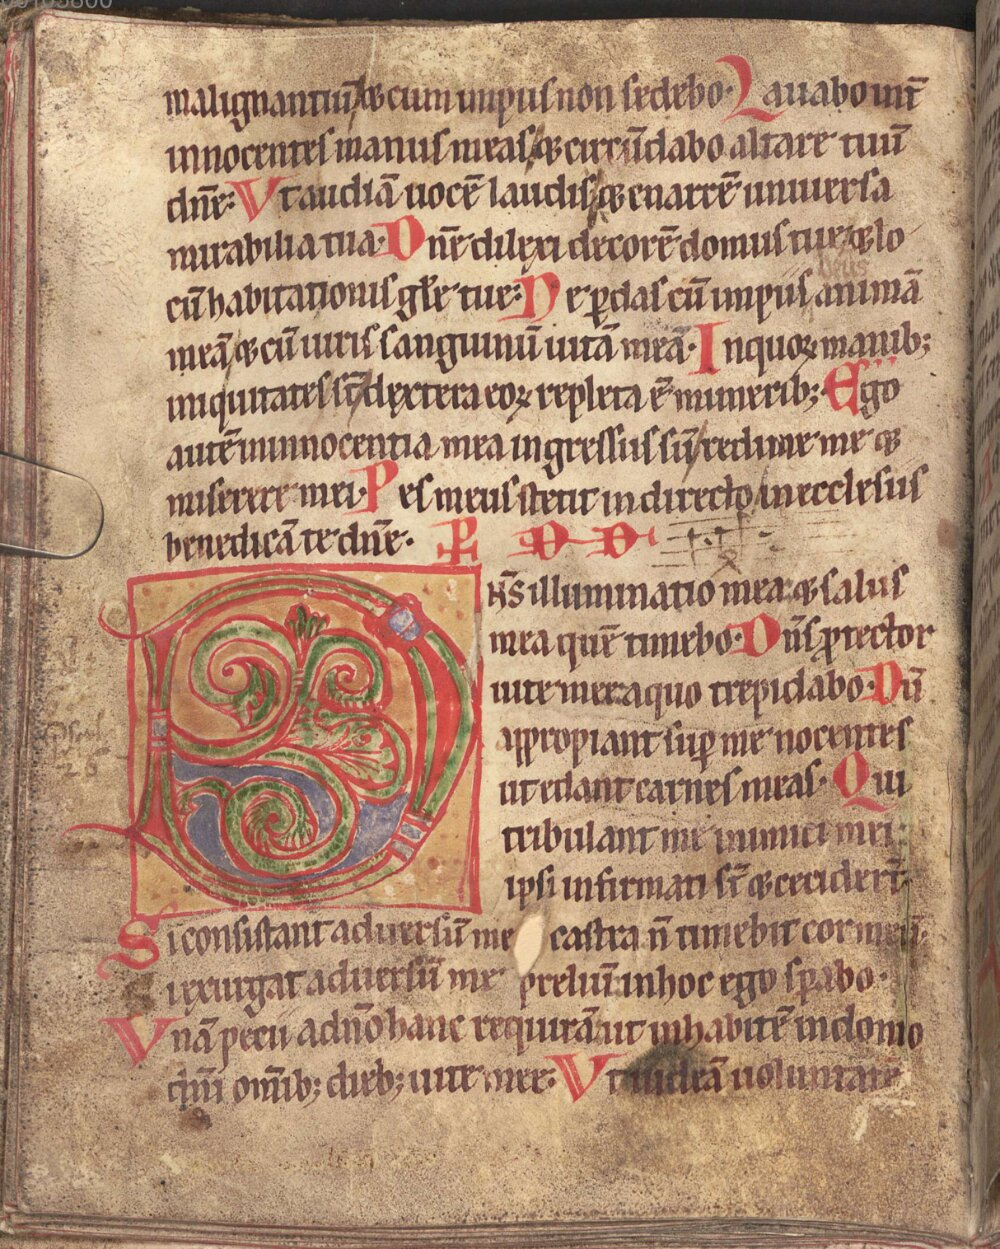 malignantiū & cum impiis non sedebo. Lauabo int̄
innocentes manus meas & circūdabo altare tuū
dn̄e. Vt audiā uocē laudis & enarrē uniuersa
mirabilia tua. Dn̄e dilexi decorē domus tuę & lo
cū habitationis gl̄e tue. Ne ꝑdas cū impiis animā
deus
meā & cū uiris sanguinū uitā meā. In quoꝝ manib;
iniquitates st̄ dextera eoꝝ repleta ē munerib; Ego
autē in innocentia mea ingressus sū redime me &
miserere mei. Pes meus stetit in directo in ecclesiis
benedicā te dn̄e.
Dn̄s illuminatio mea & salus
mea quē timebo. Dn̄s ꝓtector
uite mee a quo trepidabo. Dū
appropiant suꝑ me nocentes
ut edant carnes meas. Qui
tribulant me inimici mei.
ipsi infirmati st̄ & cecidert̄
Si consistant aduersū me castra n̄ timebit cor meū.
i exurgat aduersū me preliū in hoc ego sꝑabo.
Vnā pecii a dn̄o hanc requirā ut inhabitē in domo
dn̄i om̄ib; dieb; uite mee. Vt uideā uoluntatē